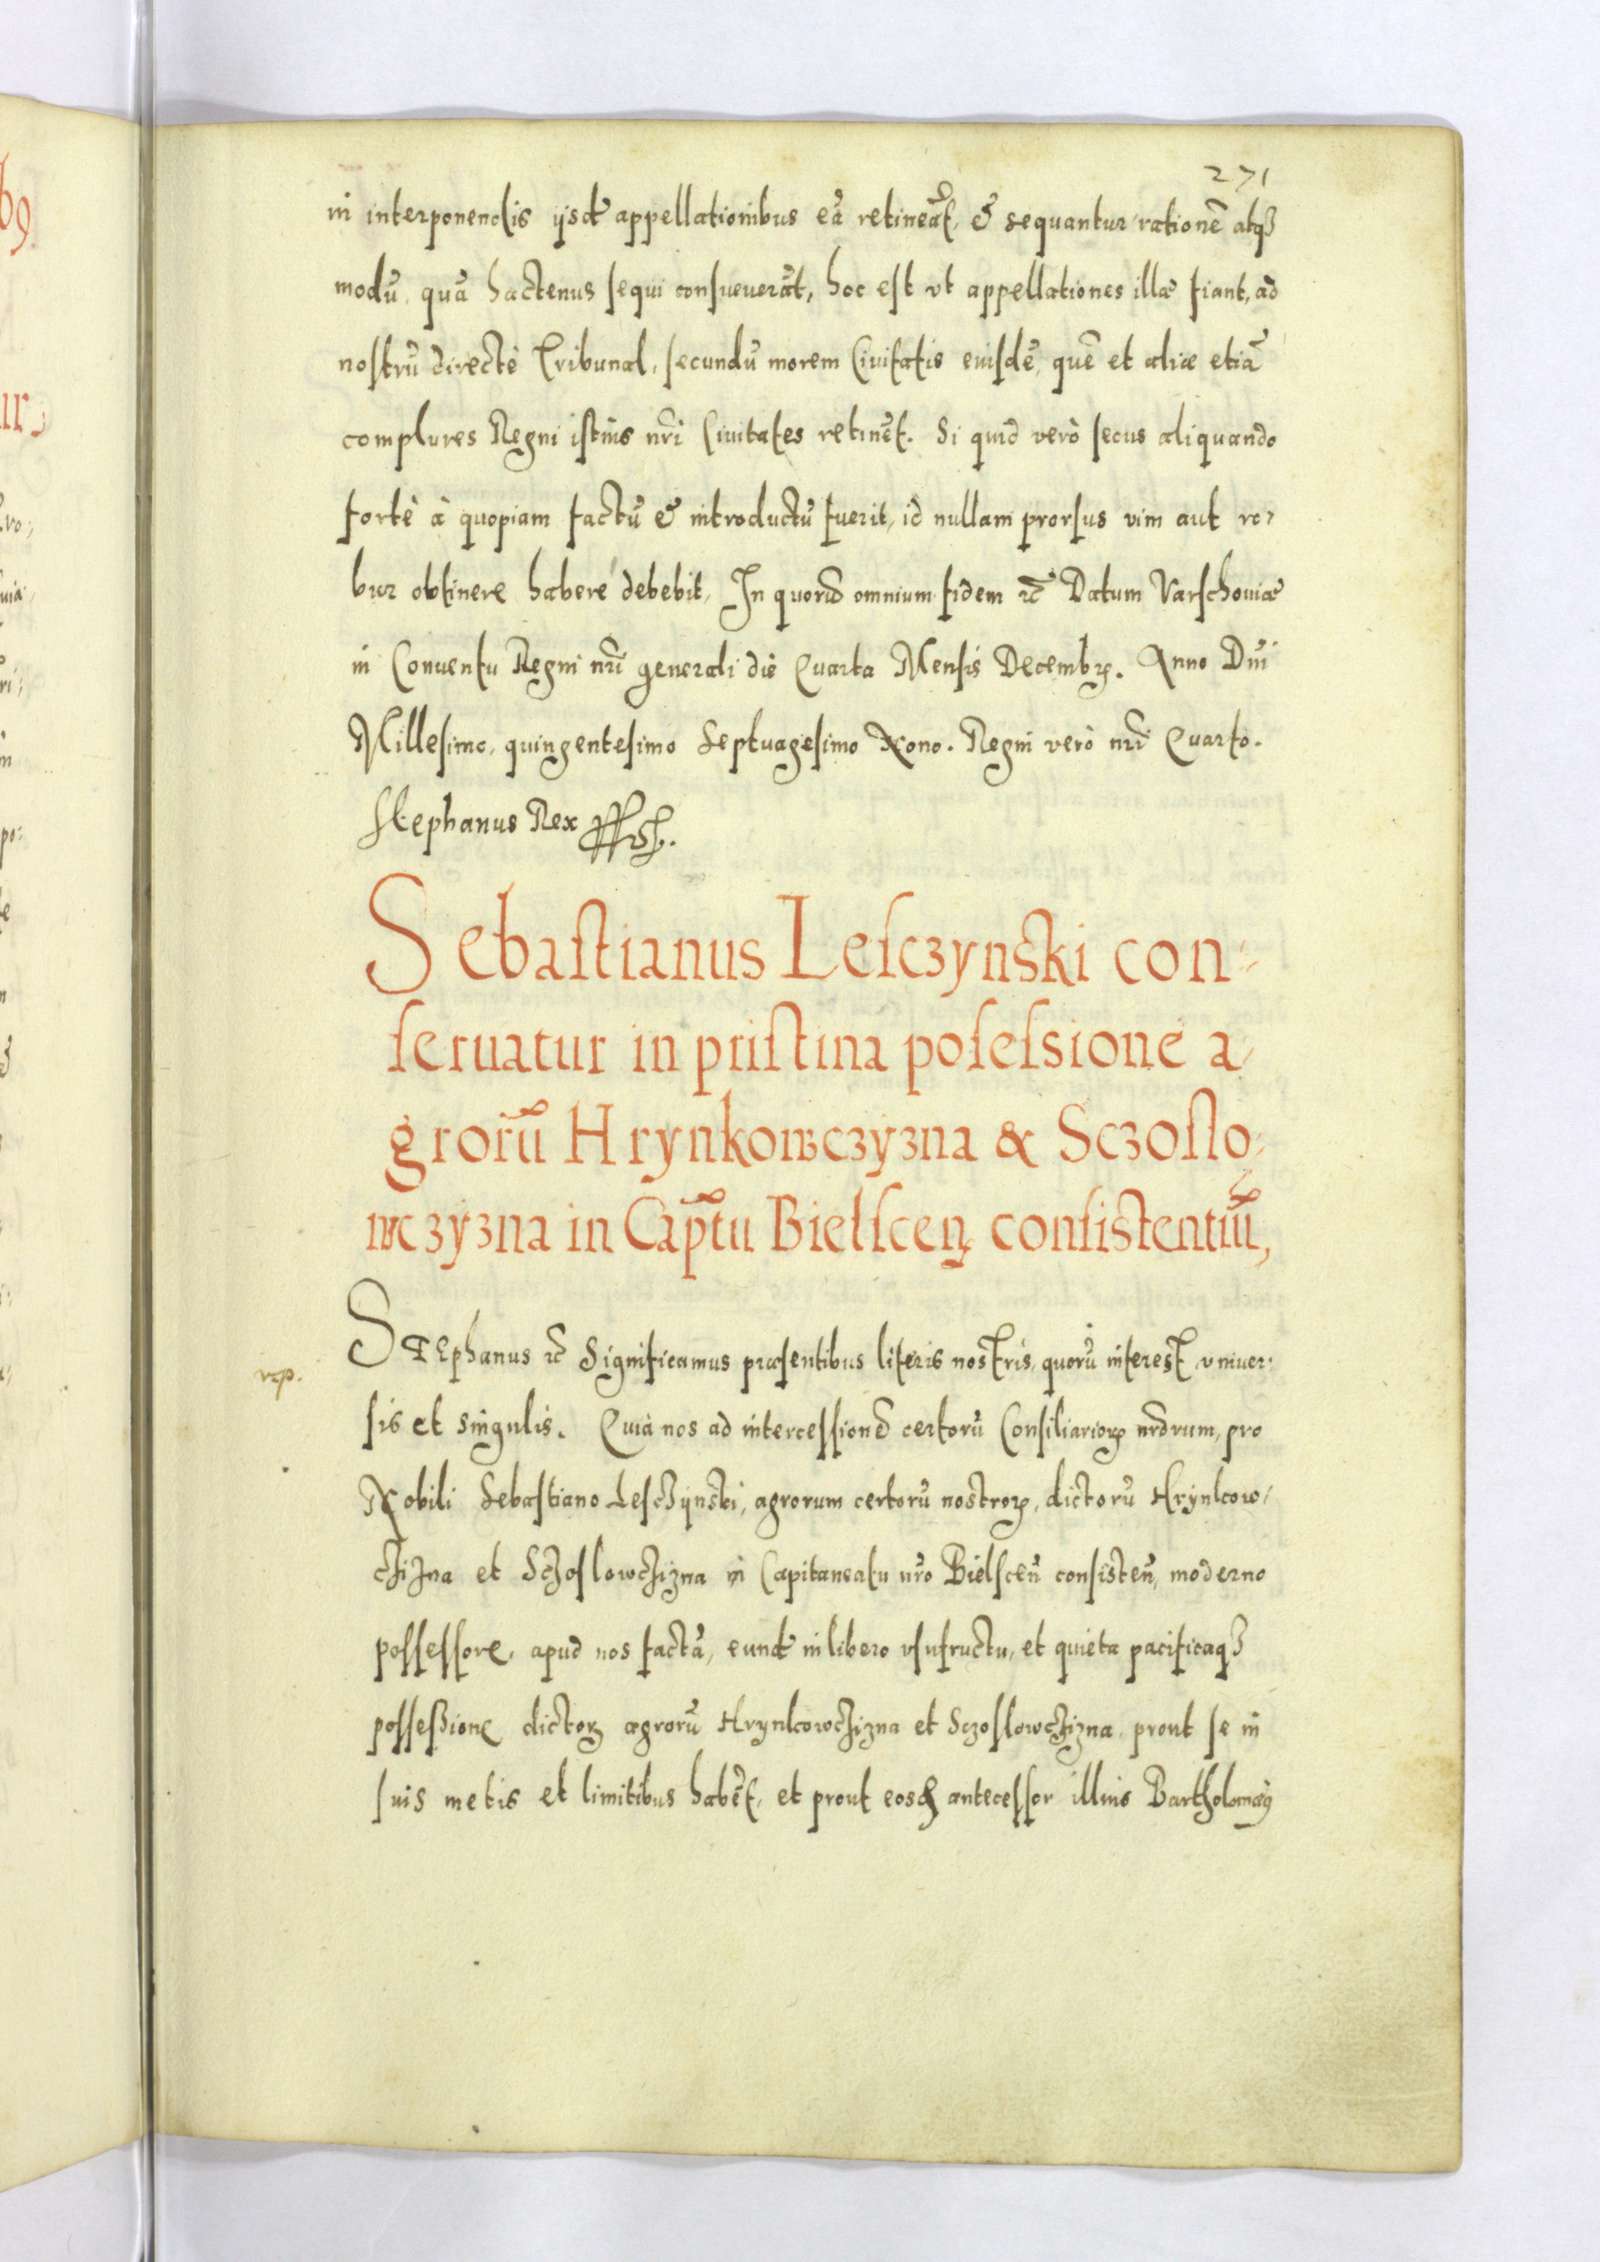 271
in interponendis ijsdē appellationibus eā retineāt, & sequantur rationē atq3
modū, quā hactenus sequi consueuerāt, hoc est vt appellationes illæ fiant, ad
nostrū directè Tribunal, secundū morem Ciuitatis eiusdē, quē et aliæ etiā
complures Regni istius nr̃i Ciuitates retinēt. Si quid verò secus aliquando
fortè à quopiam factū & introductū fuerit, id nullam prorsus vim aut ro,
bur obtinere habere debebit, In quorū omnium fidem rc̃ Datum Varschouiæ
in Conuentu Regni nr̃i generali die Quarta Mensis Decembꝝ. Anno Dn̄i
Millesimo, quingentesimo Septuagesimo Nono. Regni verò nr̃i Quarto.
Stephanus Rex
Sebastianus Lesczynski con-
seruatur in pristina posessione a-
grorū Hrynkowczyzna & Sczoslo-
wczyzna in Capt̃u Bielsceñ consistentiū,
STEphanus rc̃ Significamus præsentibus literis nostris, quorū interest vniuer:
rcp.
sis et singulis. Quia nos ad intercessionē certorū Consiliarioꝝ nr̃orum, pro
Nobili Sebastiano Lesczÿnski, agrorum certorū nostroꝝ, dictorū Hrÿnkow,
czizna et Sczoslowczizna in Capitaneatu nr̃o Bielsceñ consisteñ, moderno
possessore, apud nos factā, eundē in libero vsufructu, et quieta pacificaq3
possessione dictoꝝ agrorū Hrynkowczizna et Sczoslowczizna, prout se in
suis metis et limitibus habēt, et prout eosdē antecessor illius Bartholomæꝰ